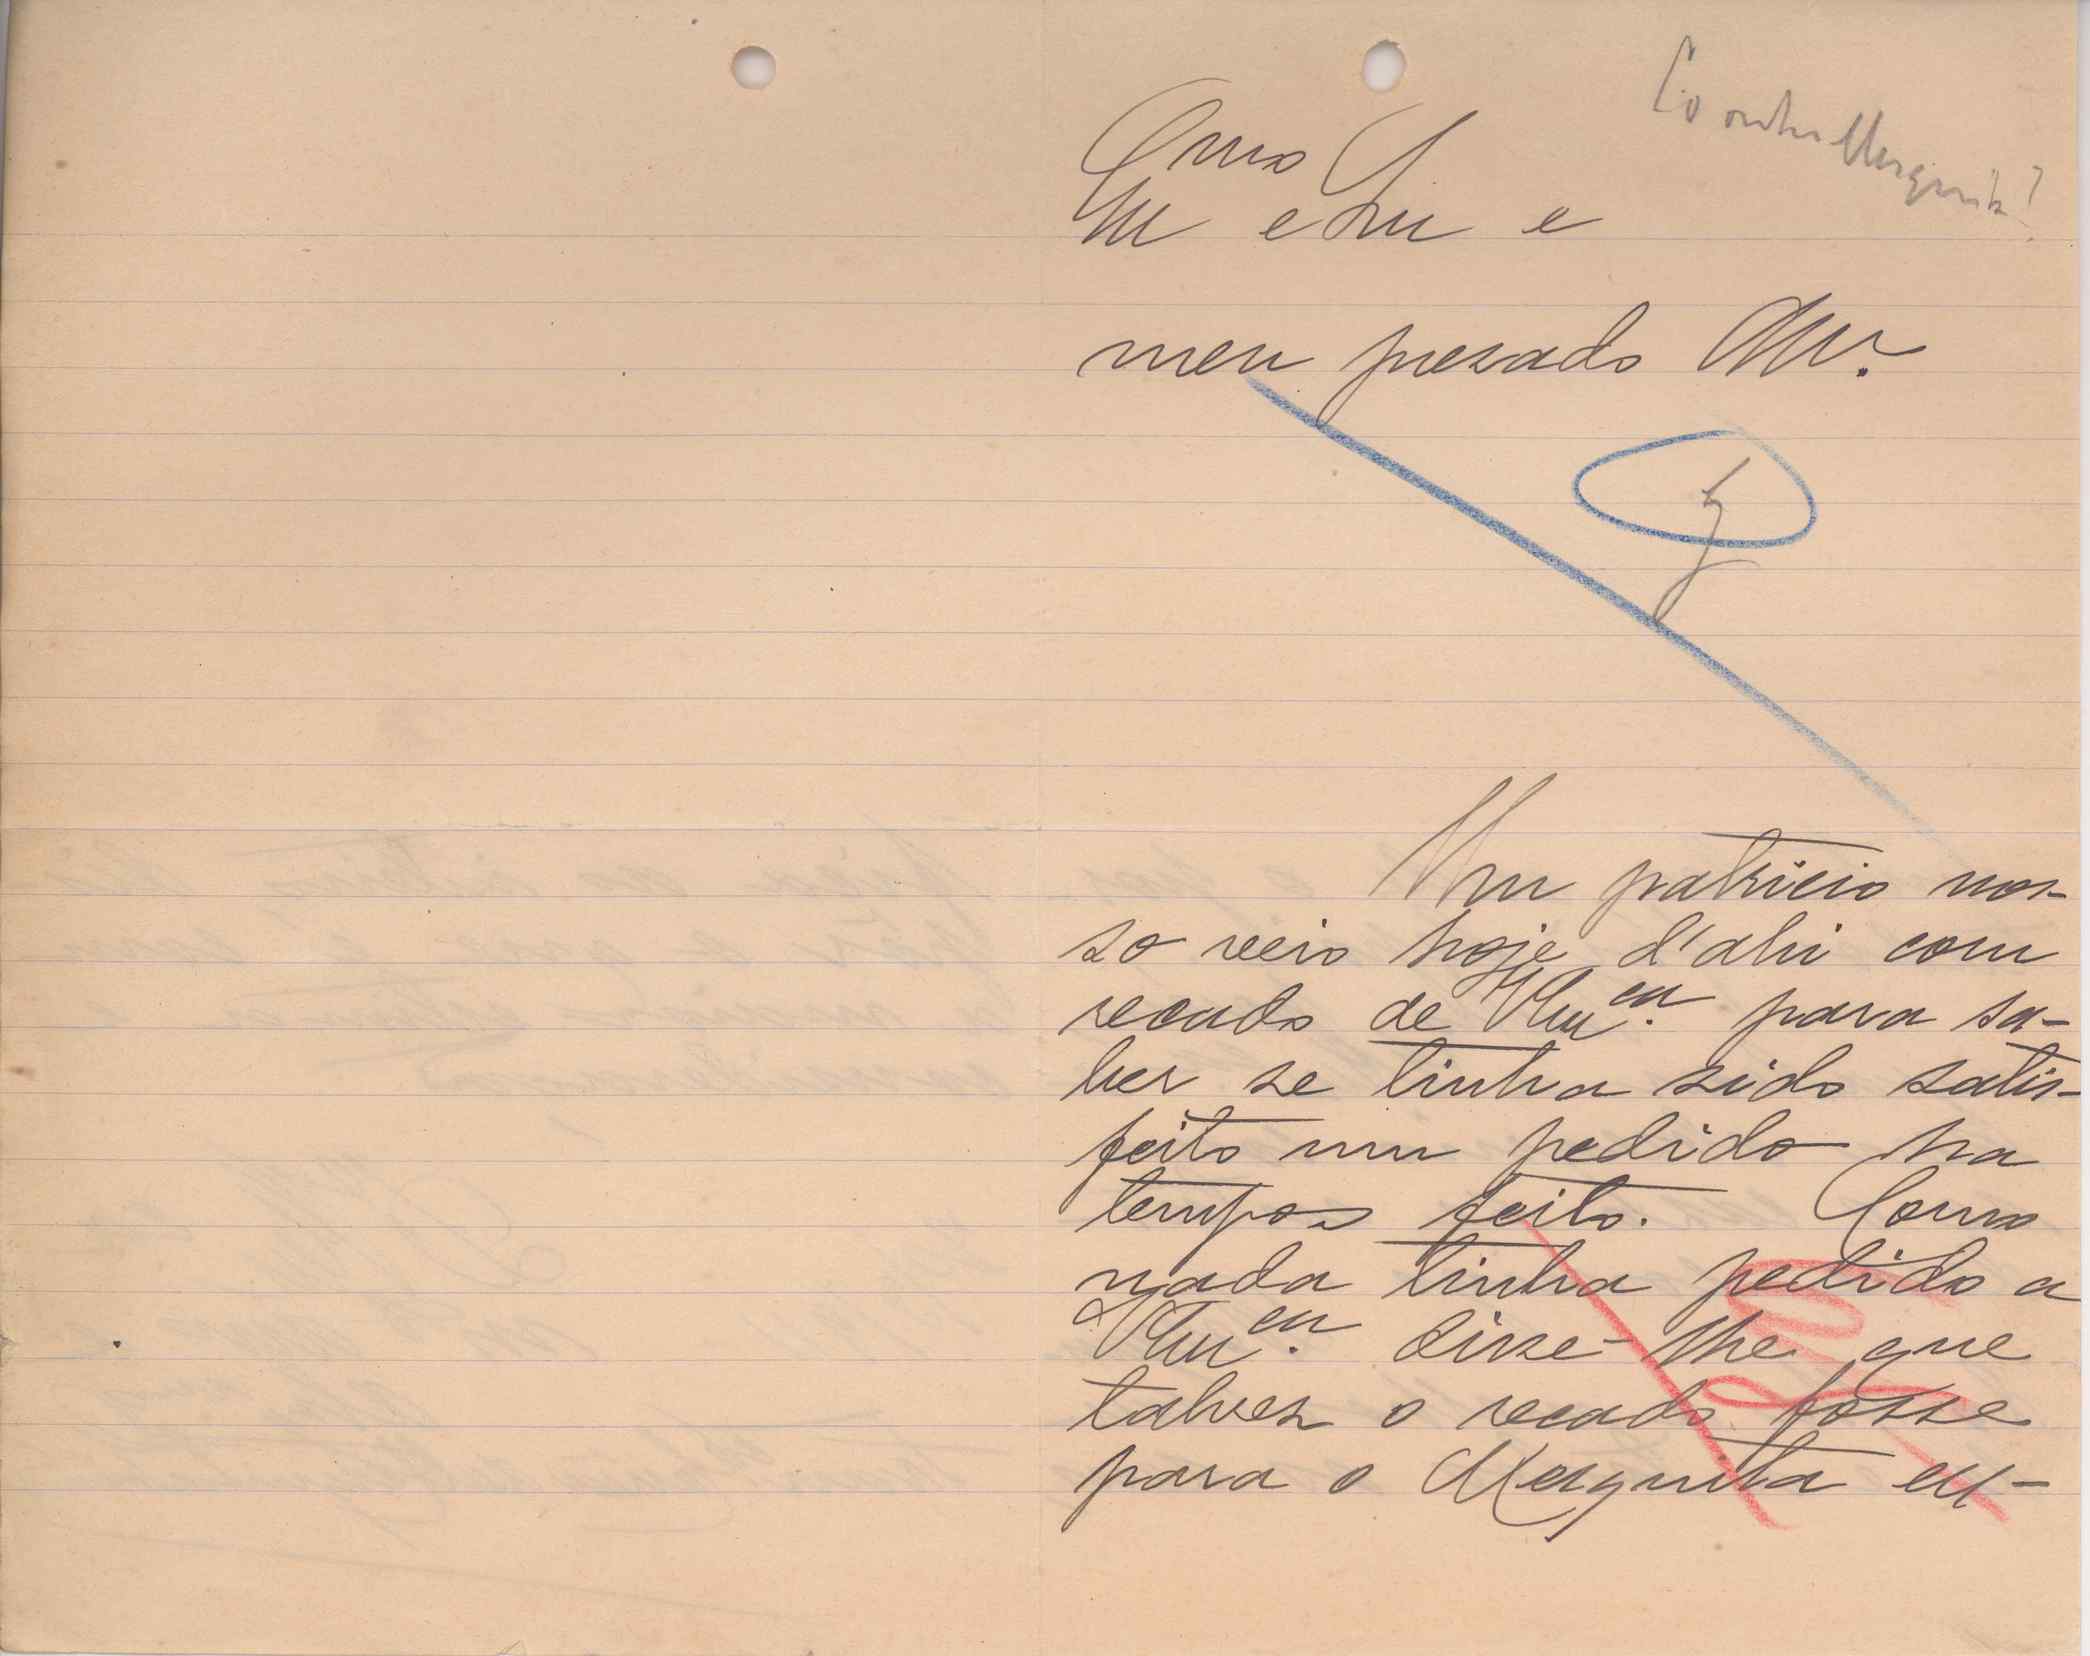 É o outro Mesquita?
Exmo Sr.
meu prezado Am.
Um patricio nos-
so veio hoje d'ahi com
recado de Vm.en para sa-
ber se tinha sido satis-
feito um pedido ha
tempos feito. Como
nada tinha pedido a
Vm.en disse-lhe que
talvez o recado fosse
para o Mesquita en-